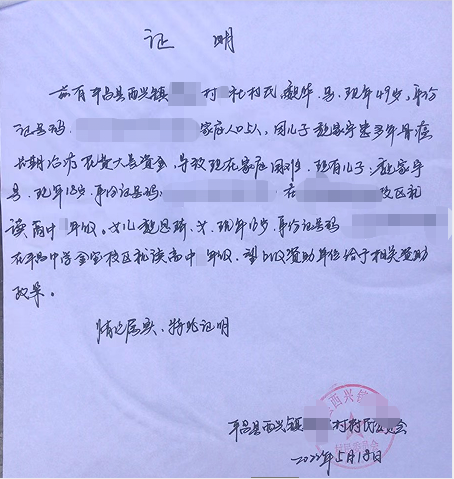 证 明
兹有平昌县西兴镇 村 社村民,华,男,现年49岁,身份
证号码: 家庭人口5人,因儿子家宇患多年骨癌
长期治疗花费大量资金,导致现在家庭困难。现有儿子:家宇
男,现年18岁,身份证号码: 在 校区就
读高中 年级。女儿恩琦,女,现年 岁,身份证号码
在平昌中学金宝校区就读高中 年级,望 资助单位给予相关资助
政策。
情况属实,特此证明
平昌县西兴镇 村村民委员会
2022年5月18日
西兴镇
村民委员会